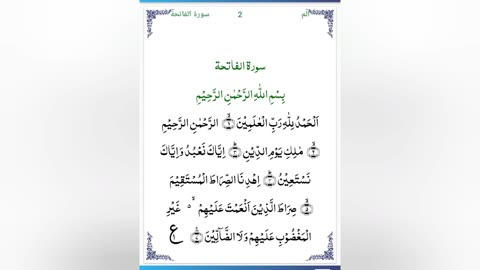 الم 2 سورة الفاتحة
سورة الفاتحة
بِسْمِ اللّٰهِ الرَّحْمٰنِ الرَّحِيْمِ
اَلْحَمْدُ لِلّٰهِ رَبِّ الْعٰلَمِيْنَ ۙ﴿۱﴾ الرَّحْمٰنِ الرَّحِيْمِ
ۙ﴿۲﴾ مٰلِكِ يَوْمِ الدِّيْنِ ؕ﴿۳﴾ اِيَّاكَ نَعْبُدُ وَاِيَّاكَ
نَسْتَعِيْنُ ؕ﴿۴﴾ اِهْدِنَا الصِّرَاطَ الْمُسْتَقِيْمَ
ۙ﴿۵﴾ صِرَاطَ الَّذِيْنَ اَنْعَمْتَ عَلَيْهِمْ ۙ۬ غَيْرِ
الْمَغْضُوْبِ عَلَيْهِمْ وَلَا الضَّآلِّيْنَ ﴿۷﴾ ع